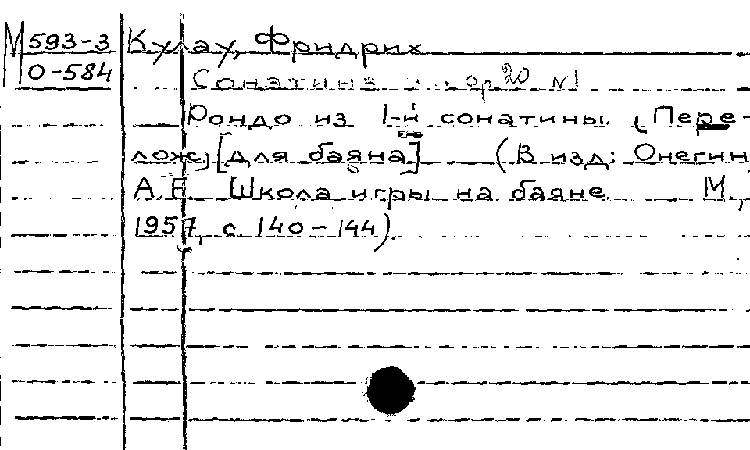 М 593-3 Кулау, Фридрих
О-584 Сонатина ор 20 №1
Рондо из 1-й сонатины. (Пере-
лож) [для баяна] (В изд: Онегин,
А.Е. Школа игры на баяне М.,
1957, с 140-144).